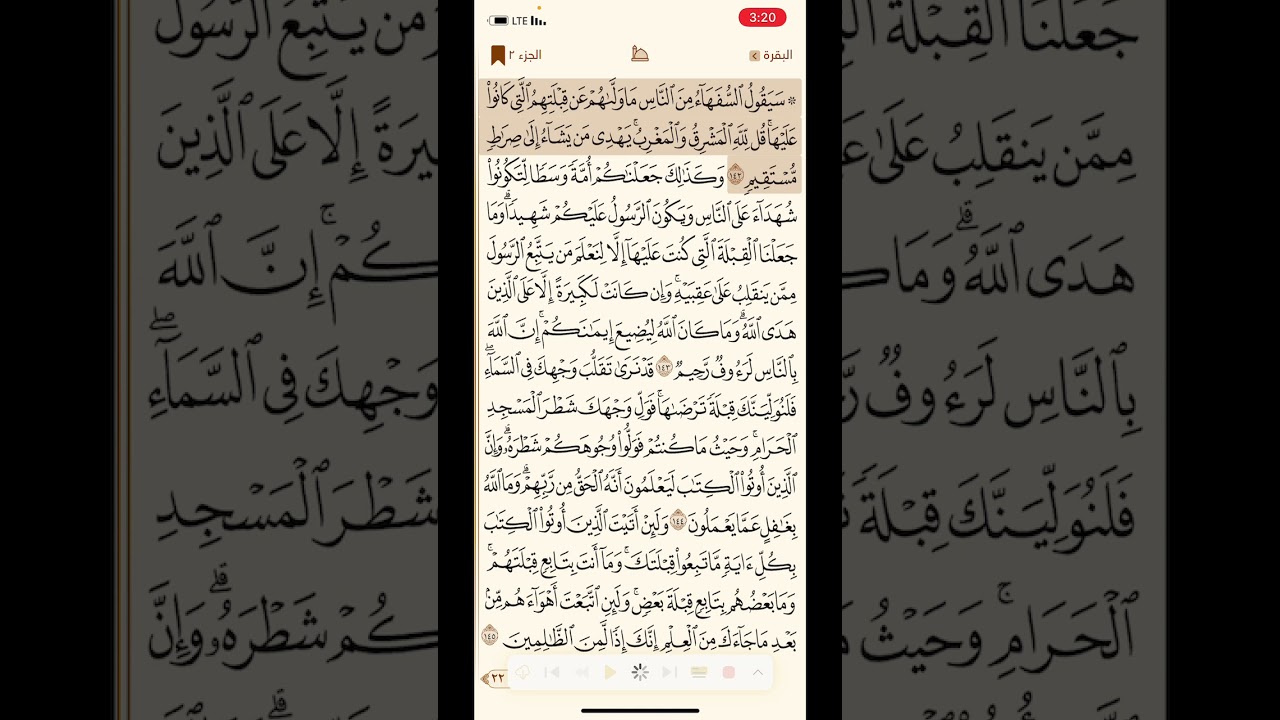 LTE
3:20
البقرة
الجزء ٢
۞ سَيَقُولُ ٱلسُّفَهَآءُ مِنَ ٱلنَّاسِ مَا وَلَّىٰهُمۡ عَن قِبۡلَتِهِمُ ٱلَّتِي كَانُواْ
عَلَيۡهَاۚ قُل لِّلَّهِ ٱلۡمَشۡرِقُ وَٱلۡمَغۡرِبُۚ يَهۡدِي مَن يَشَآءُ إِلَىٰ صِرَٰطٖ
مُّسۡتَقِيمٖ ١٤٢ وَكَذَٰلِكَ جَعَلۡنَٰكُمۡ أُمَّةٗ وَسَطٗا لِّتَكُونُواْ
شُهَدَآءَ عَلَى ٱلنَّاسِ وَيَكُونَ ٱلرَّسُولُ عَلَيۡكُمۡ شَهِيدٗاۗ وَمَا
جَعَلۡنَا ٱلۡقِبۡلَةَ ٱلَّتِي كُنتَ عَلَيۡهَآ إِلَّا لِنَعۡلَمَ مَن يَتَّبِعُ ٱلرَّسُولَ
مِمَّن يَنقَلِبُ عَلَىٰ عَقِبَيۡهِۚ وَإِن كَانَتۡ لَكَبِيرَةً إِلَّا عَلَى ٱلَّذِينَ
هَدَى ٱللَّهُۗ وَمَا كَانَ ٱللَّهُ لِيُضِيعَ إِيمَٰنَكُمۡۚ إِنَّ ٱللَّهَ
بِٱلنَّاسِ لَرَءُوفٞ رَّحِيمٞ ١٤٣ قَدۡ نَرَىٰ تَقَلُّبَ وَجۡهِكَ فِي ٱلسَّمَآءِۖ
فَلَنُوَلِّيَنَّكَ قِبۡلَةٗ تَرۡضَىٰهَاۚ فَوَلِّ وَجۡهَكَ شَطۡرَ ٱلۡمَسۡجِدِ
ٱلۡحَرَامِۚ وَحَيۡثُ مَا كُنتُمۡ فَوَلُّواْ وُجُوهَكُمۡ شَطۡرَهُۥۗ وَإِنَّ
ٱلَّذِينَ أُوتُواْ ٱلۡكِتَٰبَ لَيَعۡلَمُونَ أَنَّهُ ٱلۡحَقُّ مِن رَّبِّهِمۡۗ وَمَا ٱللَّهُ
بِغَٰفِلٍ عَمَّا يَعۡمَلُونَ ١٤٤ وَلَئِنۡ أَتَيۡتَ ٱلَّذِينَ أُوتُواْ ٱلۡكِتَٰبَ
بِكُلِّ ءَايَةٖ مَّا تَبِعُواْ قِبۡلَتَكَۚ وَمَآ أَنتَ بِتَابِعٖ قِبۡلَتَهُمۡۚ
وَمَا بَعۡضُهُم بِتَابِعٖ قِبۡلَةَ بَعۡضٖۚ وَلَئِنِ ٱتَّبَعۡتَ أَهۡوَآءَهُم مِّنۢ
بَعۡدِ مَا جَآءَكَ مِنَ ٱلۡعِلۡمِ إِنَّكَ إِذٗا لَّمِنَ ٱلظَّٰلِمِينَ ١٤٥
٢٢